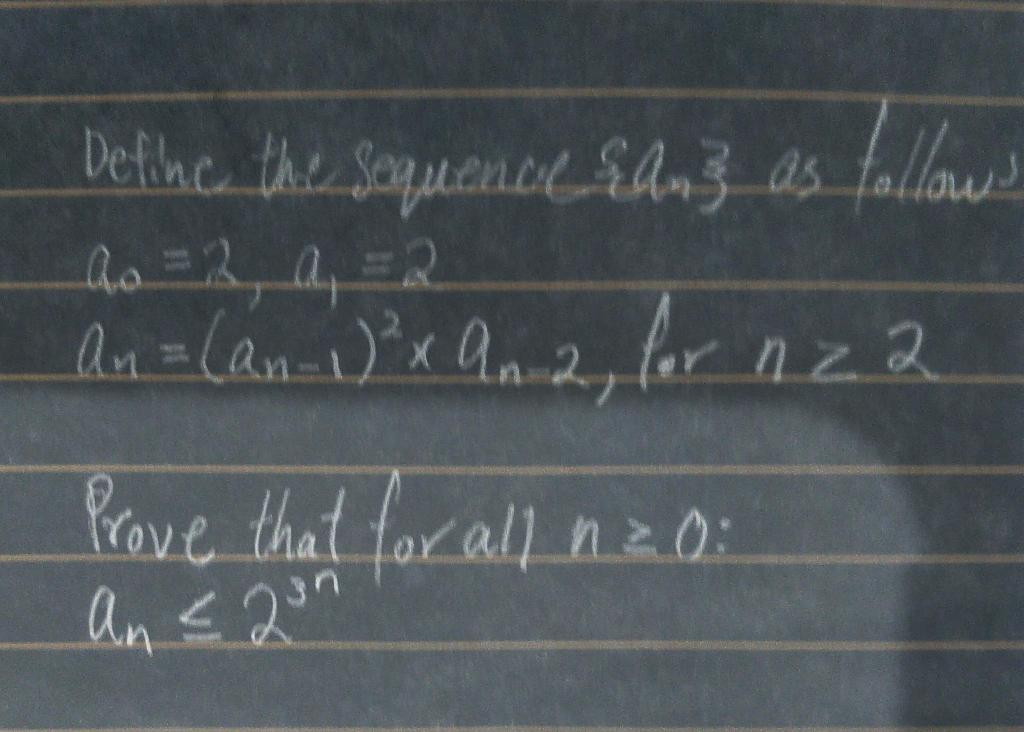 Define the sequence {an} as follows
a₀ = 2, a₁ = 2
an = (an-1)² x an-2, for n ≥ 2
Prove that for all n ≥ 0:
an ≤ 2³ⁿ